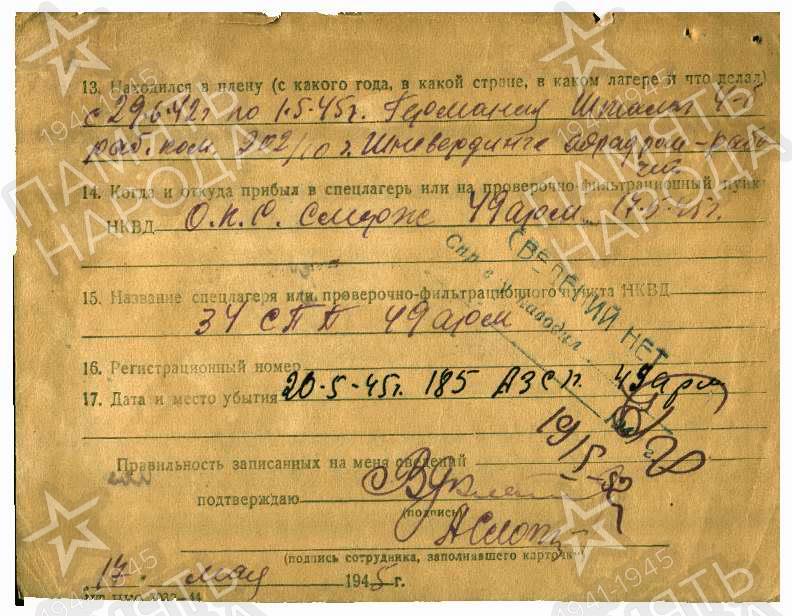 13. Находился в плену (с какого года, в какой стране, в каком лагере и что делал)
с 29.6.42г по 1.5.45г. Германия Шталаг
раб. ком. 202/10 г. Шневердинге аэродром - рабо
чий
14. Когда и откуда прибыл в спецлагерь или на проверочно-фильтрационный пункт
НКВД О.К.О. 49 арм 17.5.45г.
15. Название спецлагеря или проверочно-фильтрационного пункта НКВД
34 СПП 49 арм
СВЕДЕНИЙ НЕТ
16. Регистрационный номер
17. Дата и место убытия 20.5.45г. 185 АЗСП. 49 арм
19/5
Правильность записанных на меня сведений
подтверждаю
(подпись)
(подпись сотрудника, заполнявшего карточку)
17. мая 1945 г.
ПАМЯТЬ НАРОДА
1941-1945